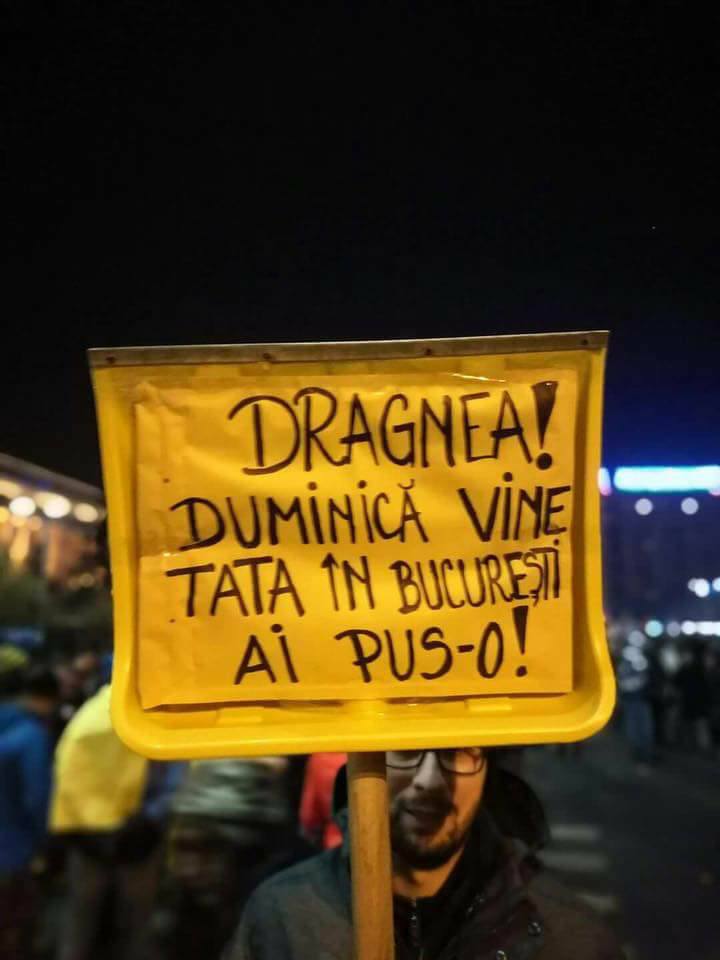 DRAGNEA!
DUMINICĂ VINE
TATA ÎN BUCUREȘTI
AI PUS-O!